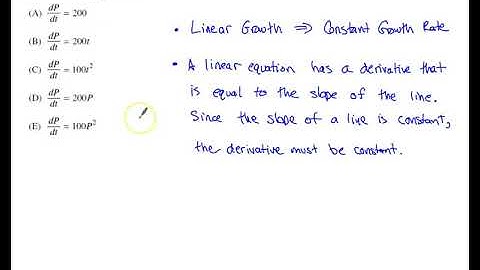 (A) dP/dt = 200
(B) dP/dt = 200t
(C) dP/dt = 100t²
(D) dP/dt = 200P
(E) dP/dt = 100P²
• Linear Growth ⇒ Constant Growth Rate
• A linear equation has a derivative that
is equal to the slope of the line.
Since the slope of a line is constant,
the derivative must be constant.